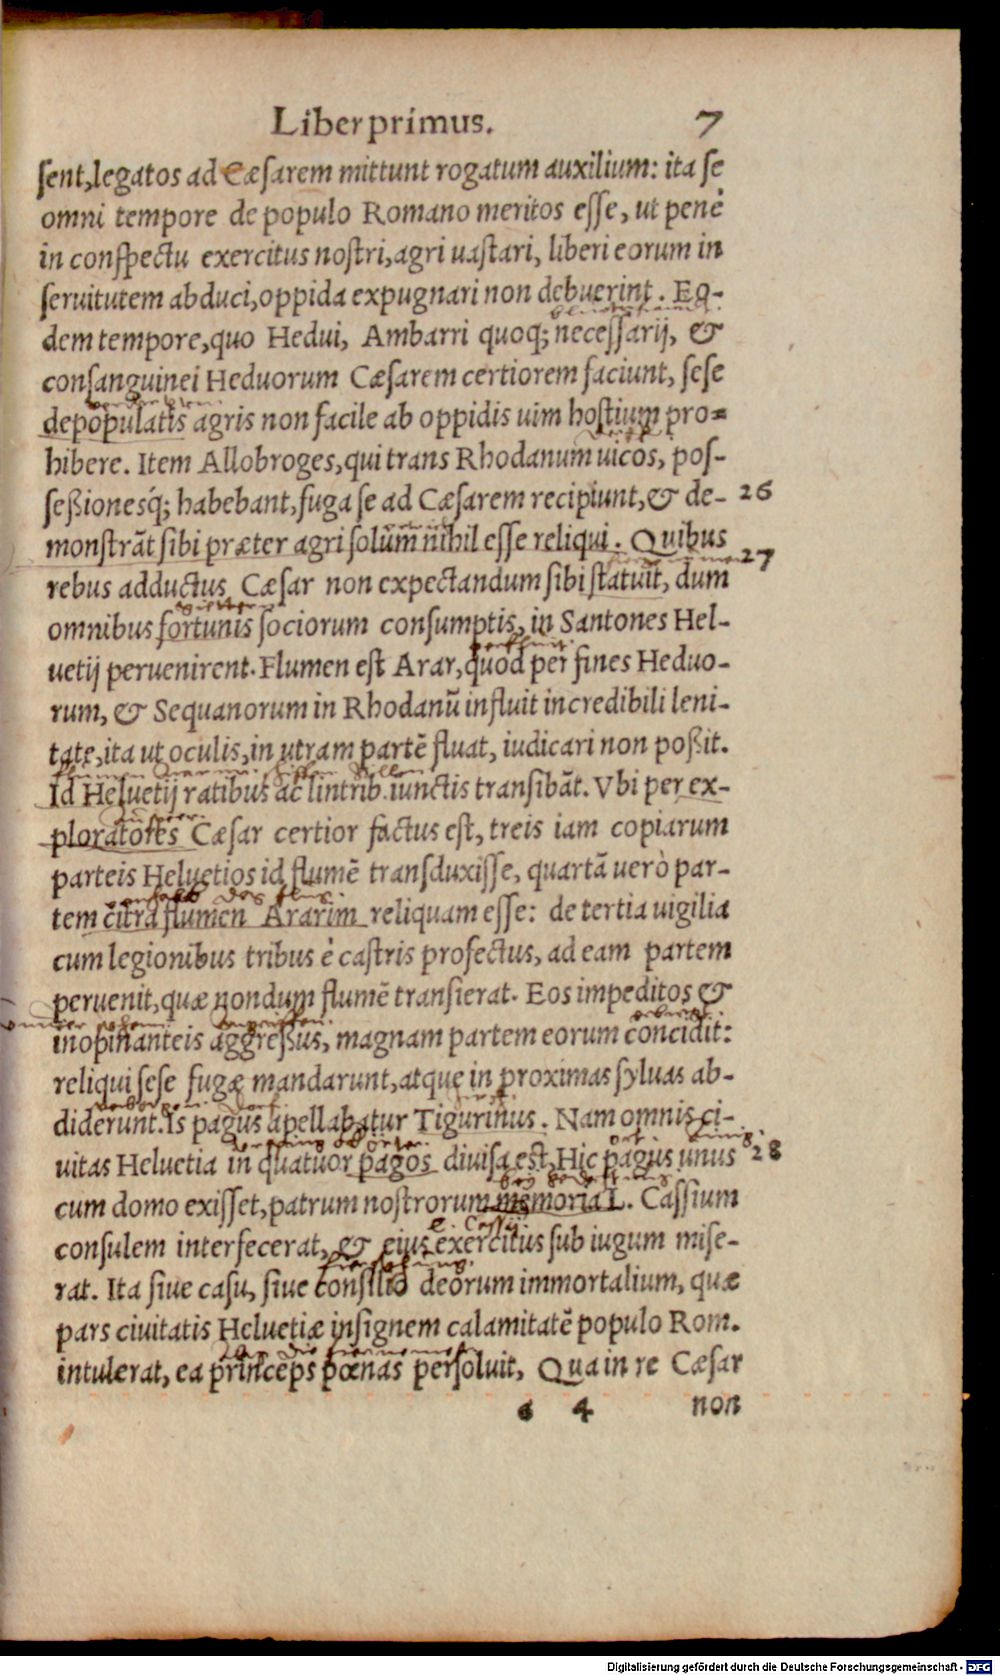 Liber primus. 7
sent, legatos ad Cæsarem mittunt rogatum auxilium: ita se
omni tempore de populo Romano meritos esse, ut penè
in conspectu exercitus nostri, agri uastari, liberi eorum in
seruitutem abduci, oppida expugnari non debuerint. Eo-
dem tempore, quo Hedui, Ambarri quoq; necessarij, &
consanguinei Heduorum Cæsarem certiorem faciunt, sese
depopulatis agris non facile ab oppidis uim hostium pro-
hibere. Item Allobroges, qui trans Rhodanum uicos, pos-
seßionesq́; habebant, fuga se ad Cæsarem recipiunt, & de- 26
monstrāt sibi præter agri solum nihil esse reliqui. Quibus
27
rebus adductus Cæsar non expectandum sibi statuit, dum
omnibus fortunis sociorum consumptis, in Santones Hel-
uetij peruenirent. Flumen est Arar, quod per fines Heduo-
rum, & Sequanorum in Rhodanū influit incredibili leni-
tate, ita ut oculis, in utram partē fluat, iudicari non poßit.
Id Heluetij ratibus ac lintrib. iunctis transibāt. Vbi per ex-
ploratores Cæsar certior factus est, treis iam copiarum
parteis Heluetios id flumē transduxisse, quartā uerò par-
tem citra flumen Ararim reliquam esse: de tertia uigilia
cum legionibus tribus è castris profectus, ad eam partem
peruenit, quæ nondum flumē transierat. Eos impeditos &
inopinanteis aggreßus, magnam partem eorum concidit:
reliqui sese fugæ mandarunt, atque in proximas syluas ab-
diderunt. Is pagus apellabatur Tigurinus. Nam omnis ci-
uitas Heluetia in quatuor pagos diuisa est, Hic pagus unus 28
cum domo exisset, patrum nostrorum memoria L. Cassium
L. Cassij
consulem interfecerat, & eius exercitus sub iugum mise-
rat. Ita siue casu, siue consilio deorum immortalium, quæ
pars ciuitatis Heluetiæ insignem calamitatē populo Rom.
intulerat, ea princeps pœnas persoluit, Qua in re Cæsar
4 non
Digitalisierung gefördert durch die Deutsche Forschungsgemeinschaft - DFG